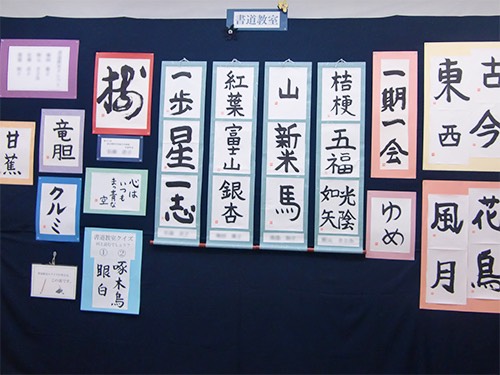 書道教室
古今
東西
花鳥
風月
一期一会
ゆめ
桔梗
五福
光陰
如矢
山
新米
馬
紅葉
富士山
銀杏
一歩
星
一志
心は
いつも
まっ青な
空
書道教室クイズ
①
眼白
②
啄木鳥
竜胆
クルミ
甘蕉